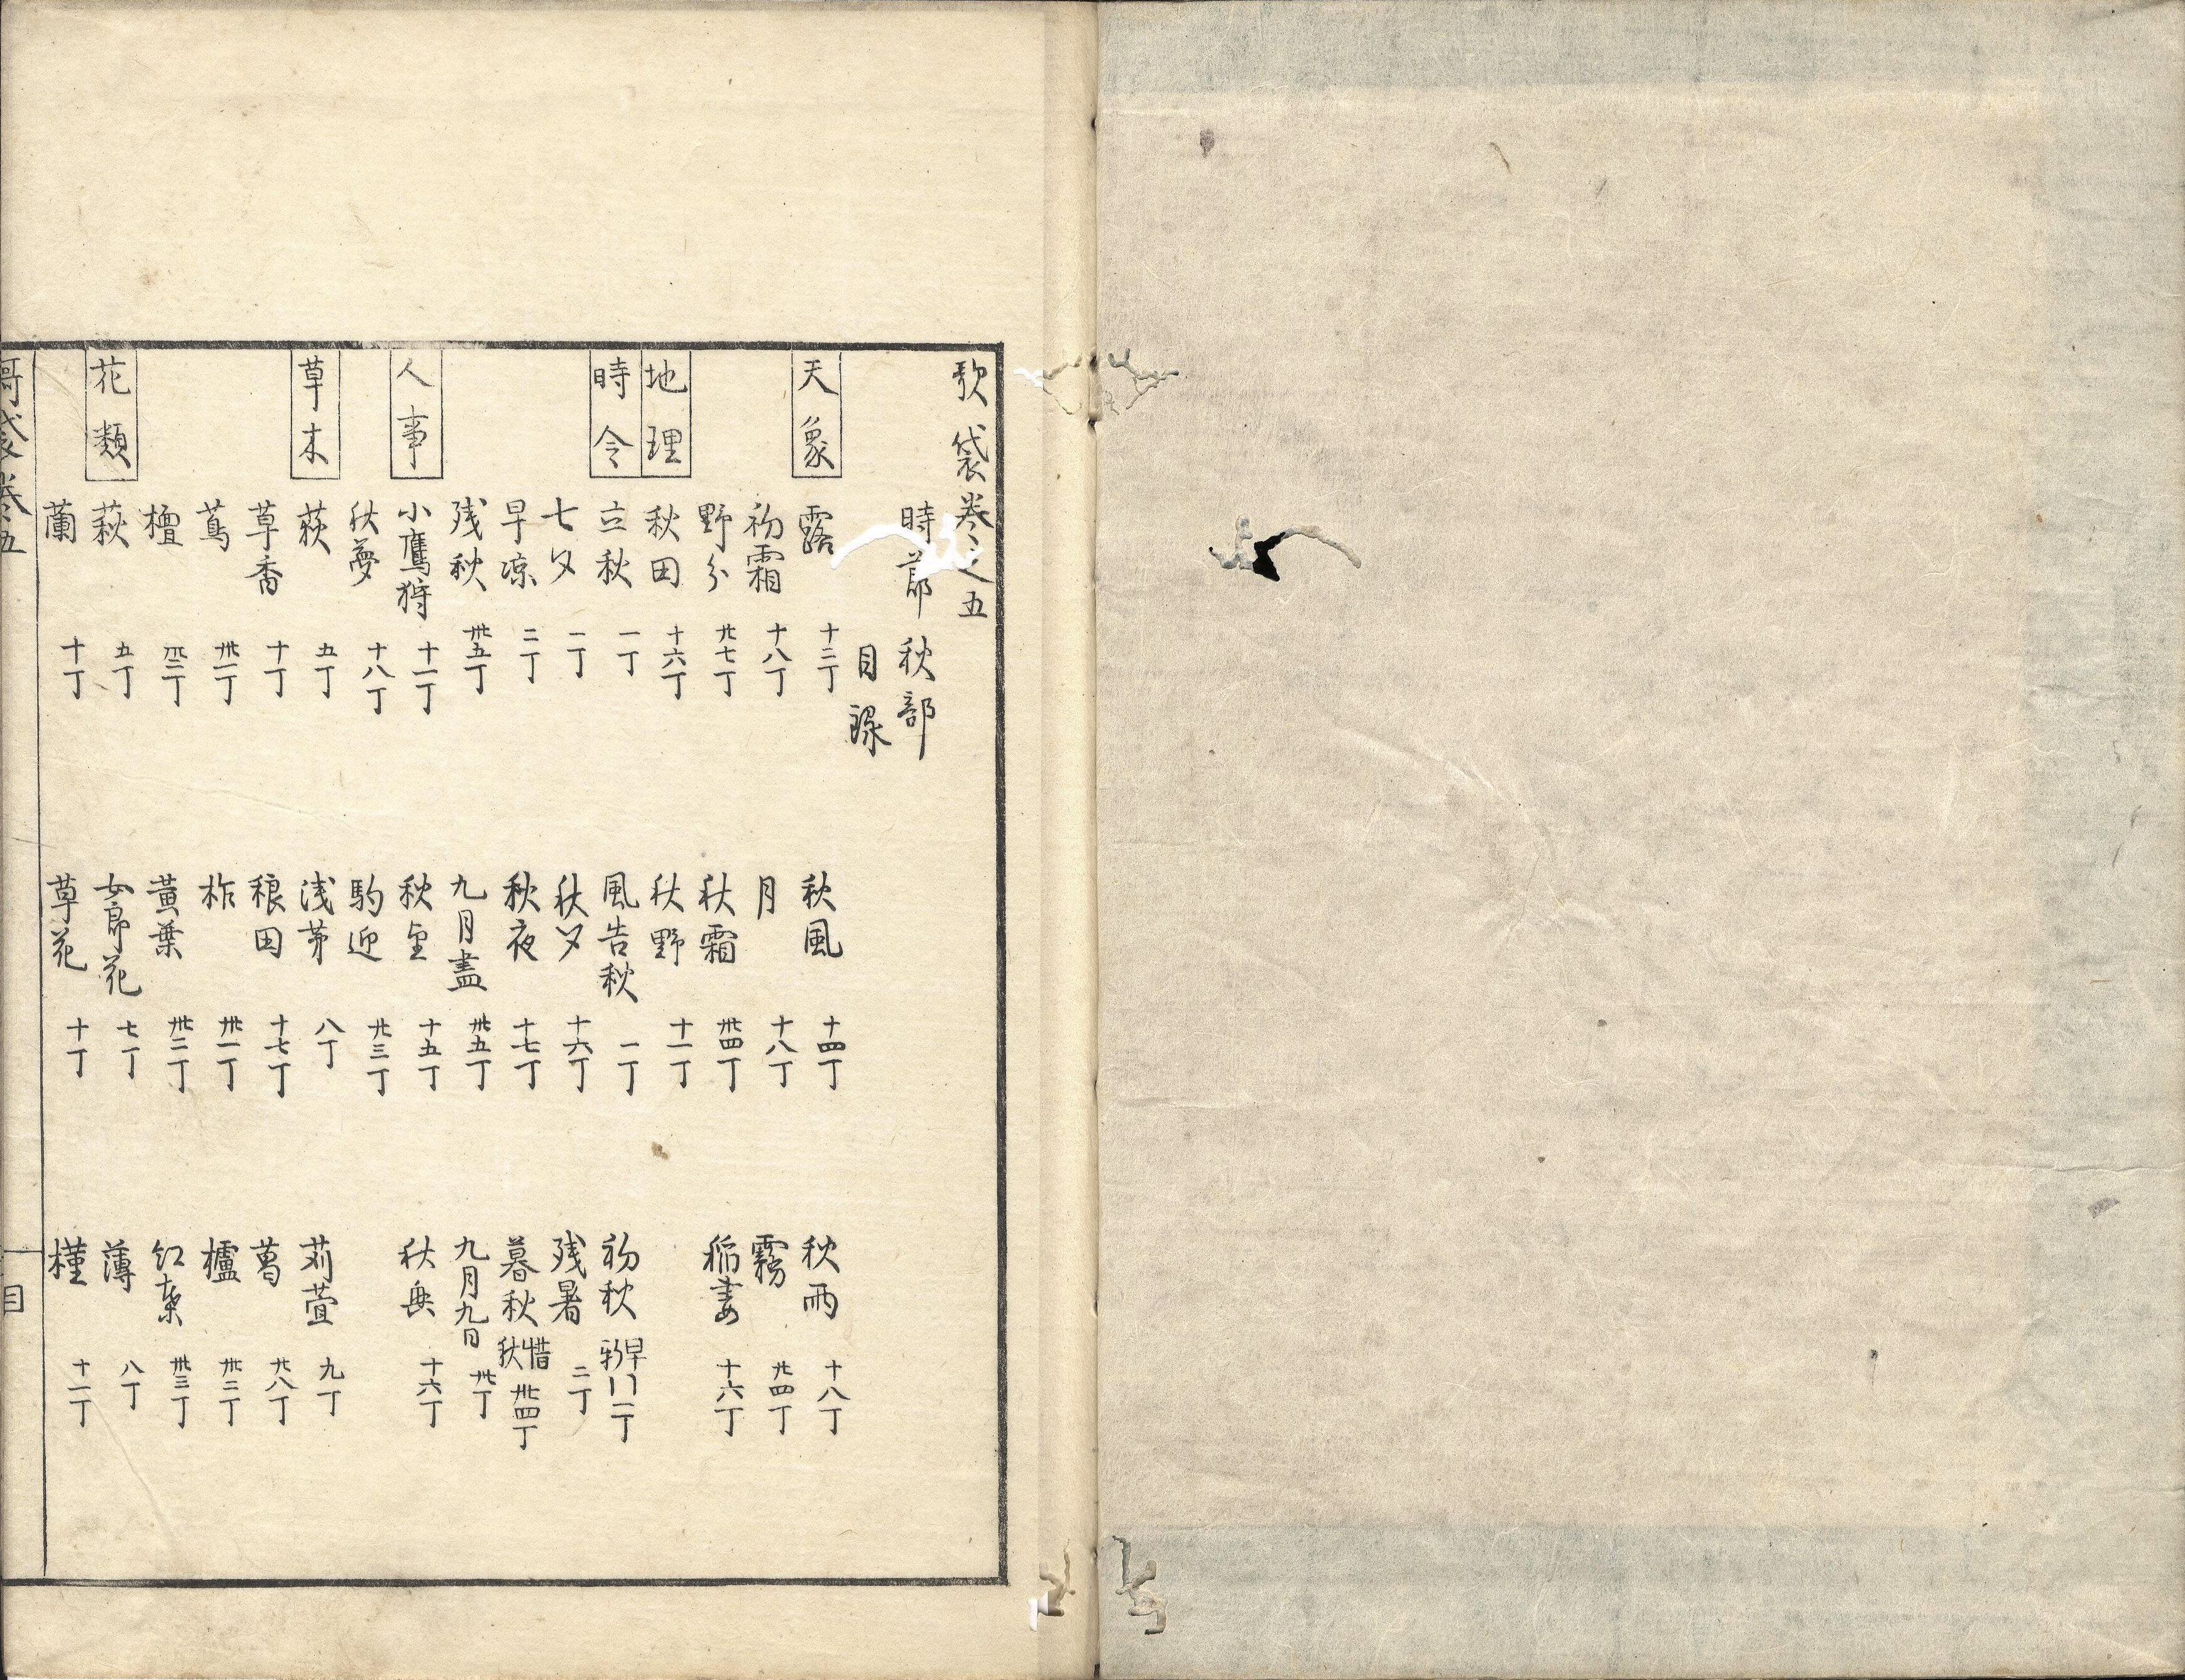 歌袋巻之五
時節 秋部
目録
天象 露 十二丁 秋風 十四丁 秋雨 十八丁
初霜 十八丁 月 十八丁 霧 廿四丁
野分 廿七丁 秋霜 丗四丁 稲妻 十六丁
地理 秋田 十六丁 秋野 十一丁
時令 立秋 一丁 風告秋 一丁 初秋 早 二丁
七夕 一丁 秋夕 十六丁 残暑 二丁
早凉 二丁 秋夜 十七丁 暮秋 惜秋 丗四丁
残秋 丗五丁 九月盡 丗五丁 九月九日 丗丁
人事 小鷹狩 十一丁 秋望 十五丁 秋興 十六丁
秋夢 十八丁 駒迎 廿三丁
草木 荻 五丁 浅茅 八丁 苅萱 九丁
草香 十丁 稂田 十七丁 葛 廿八丁
蔦 丗一丁 柞 丗一丁 櫨 丗二丁
檀 丗二丁 黄葉 丗二丁 紅葉 丗三丁
花類 萩 五丁 女郎花 七丁 薄 八丁
蘭 十丁 草花 十丁 槿 十一丁
哥袋巻五 目